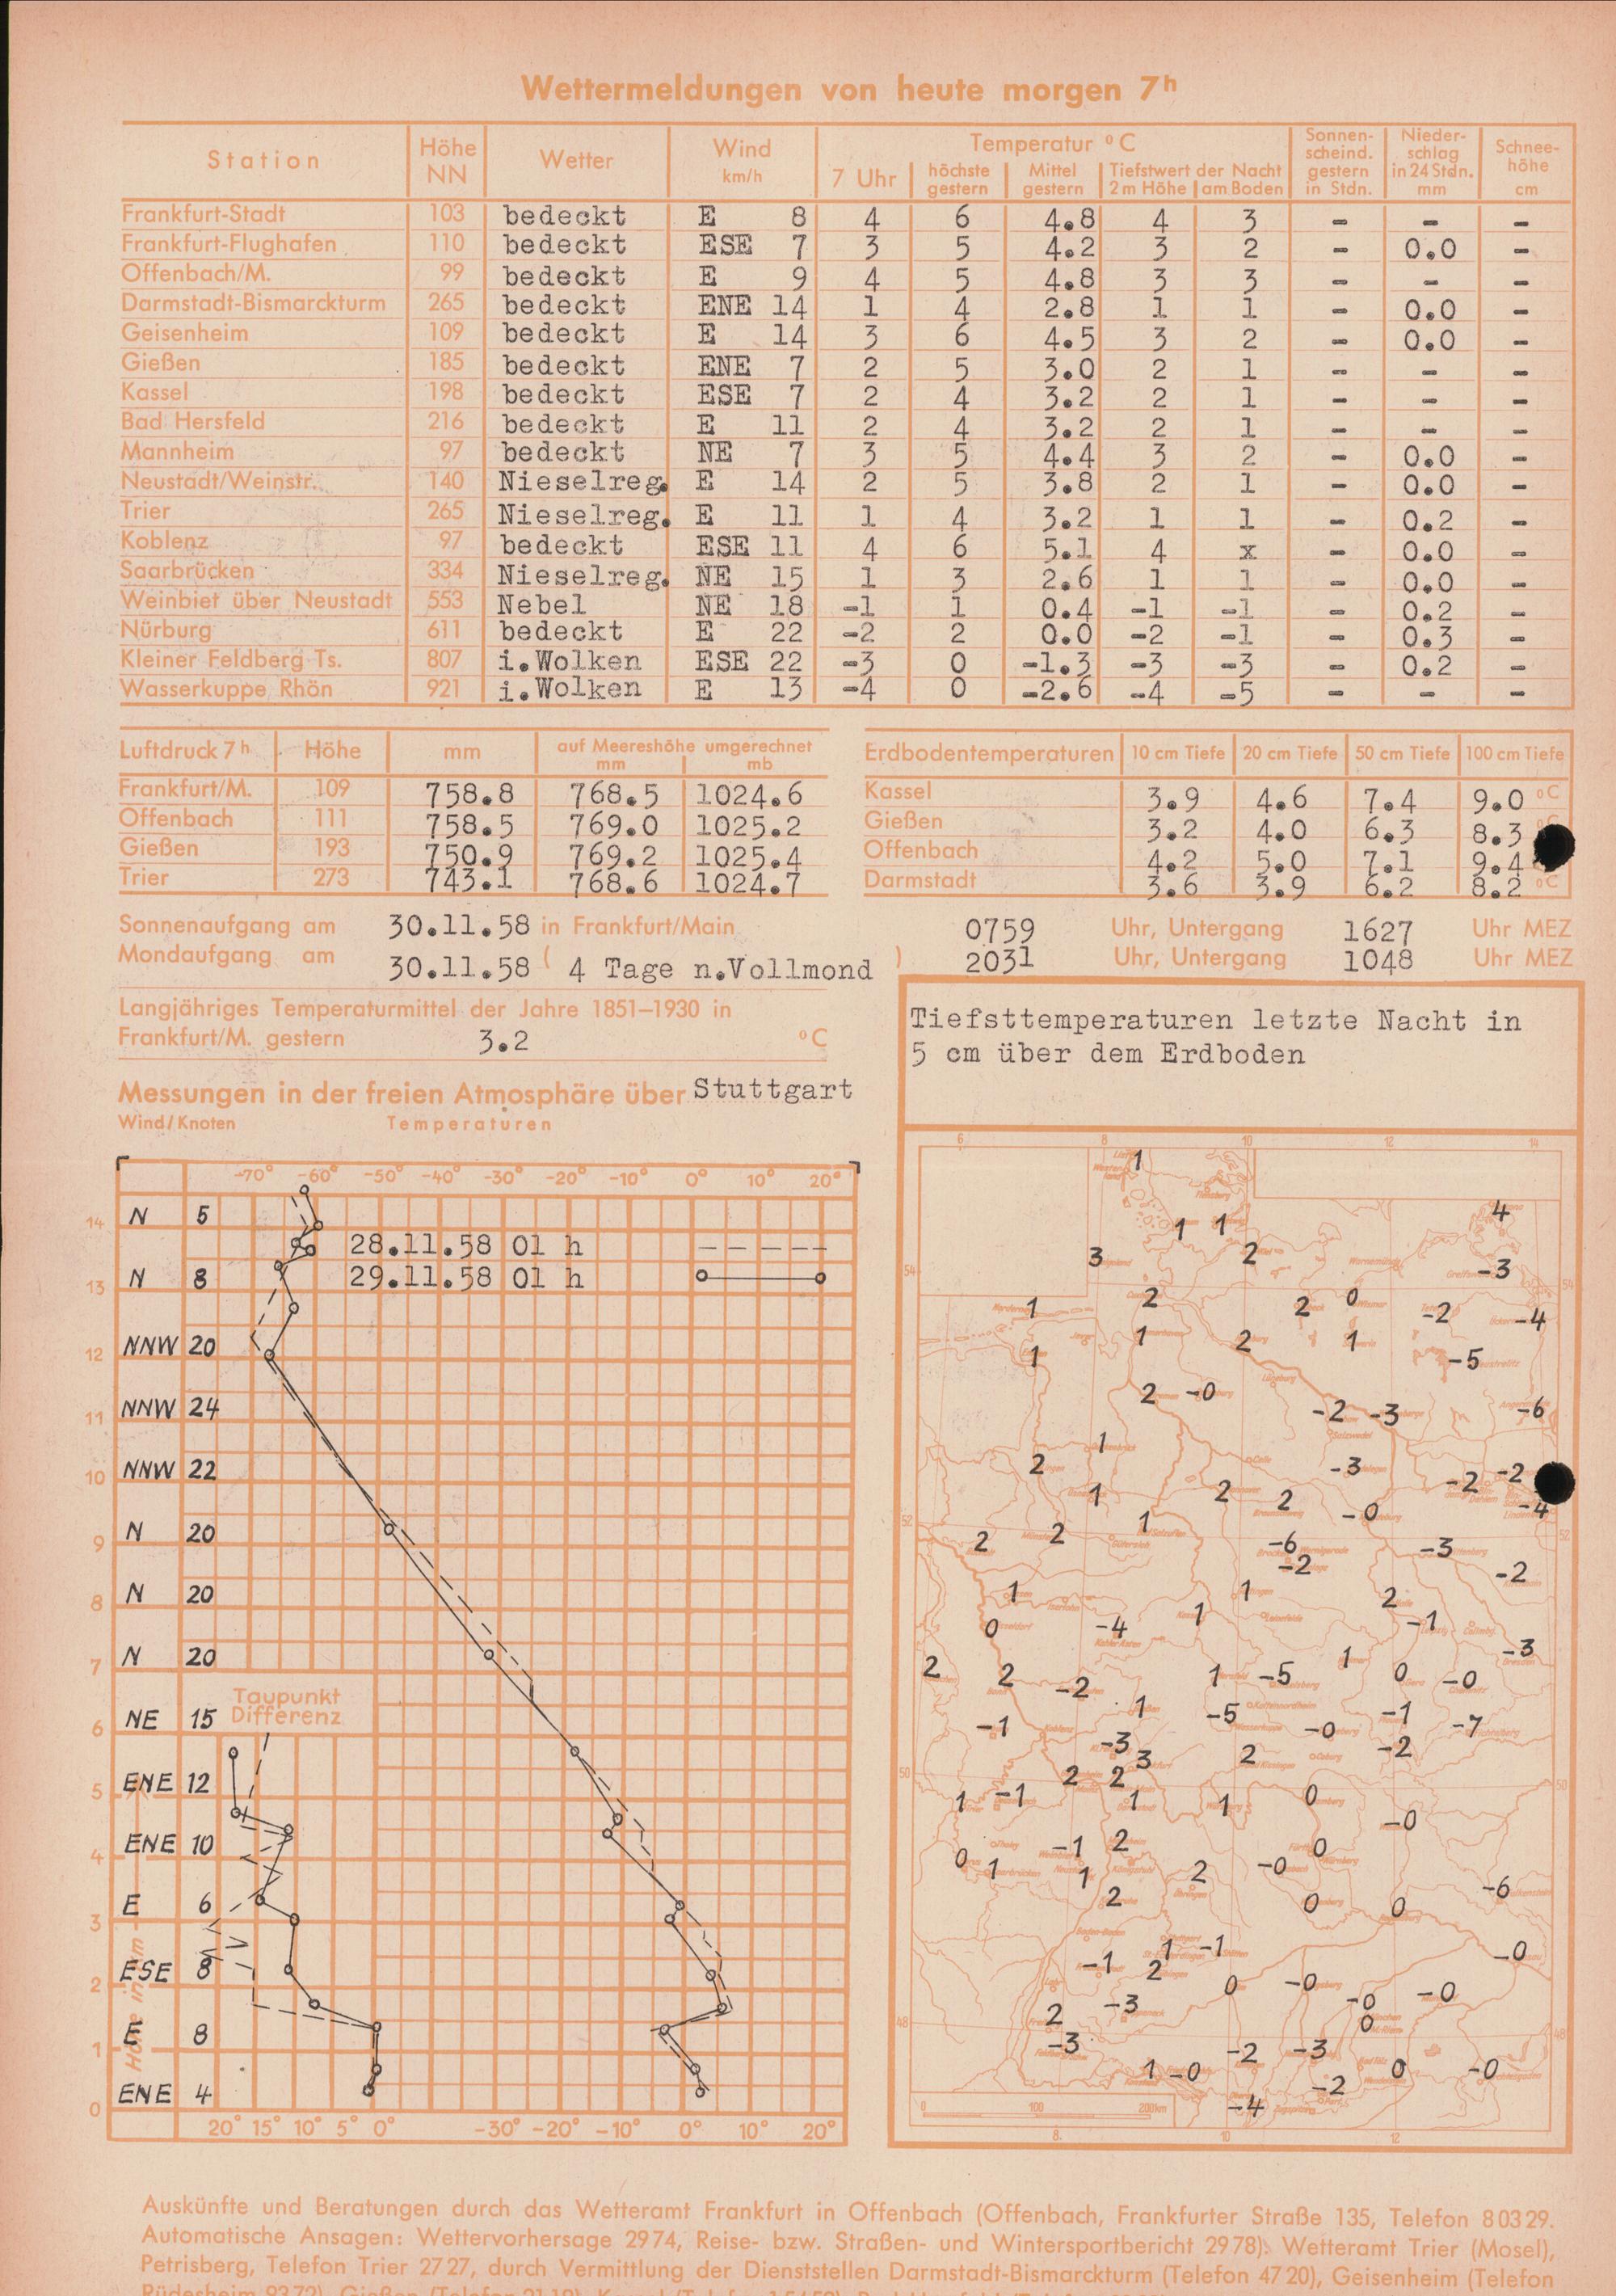 Wettermeldungen von heute morgen 7h
Station Höhe NN Wetter Wind km/h Temperatur °C 7 Uhr höchste gestern Mittel gestern Tiefstwert der Nacht 2 m Höhe am Boden Sonnen-scheind. gestern in Stdn. Nieder-schlag in 24 Stdn. mm Schnee-höhe cm
Frankfurt-Stadt 103 bedeckt E 8 4 6 4.8 4 3 - - -
Frankfurt-Flughafen 110 bedeckt ESE 7 3 5 4.2 3 2 - 0.0 -
Offenbach/M. 99 bedeckt E 9 4 5 4.8 3 3 - - -
Darmstadt-Bismarckturm 265 bedeckt ENE 14 1 4 2.8 1 1 - 0.0 -
Geisenheim 109 bedeckt E 14 3 6 4.5 3 2 - 0.0 -
Gießen 185 bedeckt ENE 7 2 5 3.0 2 1 - - -
Kassel 198 bedeckt ESE 7 2 4 3.2 2 1 - - -
Bad Hersfeld 216 bedeckt E 11 2 4 3.2 2 1 - - -
Mannheim 97 bedeckt NE 7 3 5 4.4 3 2 - 0.0 -
Neustadt/Weinstr. 140 Nieselreg. E 14 2 5 3.8 2 1 - 0.0 -
Trier 265 Nieselreg. E 11 1 4 3.2 1 1 - 0.2 -
Koblenz 97 bedeckt ESE 11 4 6 5.1 4 x - 0.0 -
Saarbrücken 334 Nieselreg. NE 15 1 3 2.6 1 1 - 0.0 -
Weinbiet über Neustadt 553 Nebel NE 18 -1 1 0.4 -1 -1 - 0.2 -
Nürburg 611 bedeckt E 22 -2 2 0.0 -2 -1 - 0.3 -
Kleiner Feldberg Ts. 807 i.Wolken ESE 22 -3 0 -1.3 -3 -3 - 0.2 -
Wasserkuppe Rhön 921 i.Wolken E 13 -4 0 -2.6 -4 -5 - - -
Luftdruck 7h Höhe mm auf Meereshöhe umgerechnet mm mb
Frankfurt/M. 109 758.8 768.5 1024.6
Offenbach 111 758.5 769.0 1025.2
Gießen 193 750.9 769.2 1025.4
Trier 273 743.1 768.6 1024.7
Erdbodentemperaturen 10 cm Tiefe 20 cm Tiefe 50 cm Tiefe 100 cm Tiefe
Kassel 3.9 4.6 7.4 9.0 °C
Gießen 3.2 4.0 6.3 8.3
Offenbach 4.2 5.0 7.1 9.4
Darmstadt 3.6 3.9 6.2 8.2 °C
Sonnenaufgang am 30.11.58 in Frankfurt/Main 0759 Uhr, Untergang 1627 Uhr MEZ
Mondaufgang am 30.11.58 ( 4 Tage n.Vollmond ) 2031 Uhr, Untergang 1048 Uhr MEZ
Langjähriges Temperaturmittel der Jahre 1851-1930 in
Frankfurt/M. gestern 3.2 °C
Messungen in der freien Atmosphäre über Stuttgart
Wind/Knoten Temperaturen
-70° -60° -50° -40° -30° -20° -10° 0° 10° 20°
14 N 5
28.11.58 01 h
13 N 8 29.11.58 01 h
12 NNW 20
11 NNW 24
10 NNW 22
9 N 20
8 N 20
7 N 20
Taupunkt
Differenz
6 NE 15
5 ENE 12
4 ENE 10
3 E 6
2 ESE 8
1 E 8
0 ENE 4
Höhe in km
20° 15° 10° 5° 0° -30° -20° -10° 0° 10° 20°
Tiefsttemperaturen letzte Nacht in
5 cm über dem Erdboden
6 8 10 12 14
1
1 1 4
3 2 -3
54 54
1 2 2 0 -2 -4
1 1 2 1 -5
2 -0 -2 -3 -6
1
2 -3 -2 -2
1 2 2 -0 -4
52 52
2 2 1 -6 -3
-2 -2
1 1 2
0 -4 1 -1
2 2 -2 1 -5 1 0 -0 -3
-1 1 -5 -0 -1 -7
-3 3 2 -2
50 50
1 -1 2 2 1 1 0 -0
0 1 -1 2 1 2 -0 0
2 0 0 -6
-1 1 2 -1 -0
2 -3 0 -0 -0 -0
48 48
-3 0
1 -0 -2 -3 0 -0
-4 -2
0 100 200km
8 10 12
Auskünfte und Beratungen durch das Wetteramt Frankfurt in Offenbach (Offenbach, Frankfurter Straße 135, Telefon 80329.
Automatische Ansagen: Wettervorhersage 2974, Reise- bzw. Straßen- und Wintersportbericht 2978). Wetteramt Trier (Mosel),
Petrisberg, Telefon Trier 2727, durch Vermittlung der Dienststellen Darmstadt-Bismarckturm (Telefon 4720), Geisenheim (Telefon